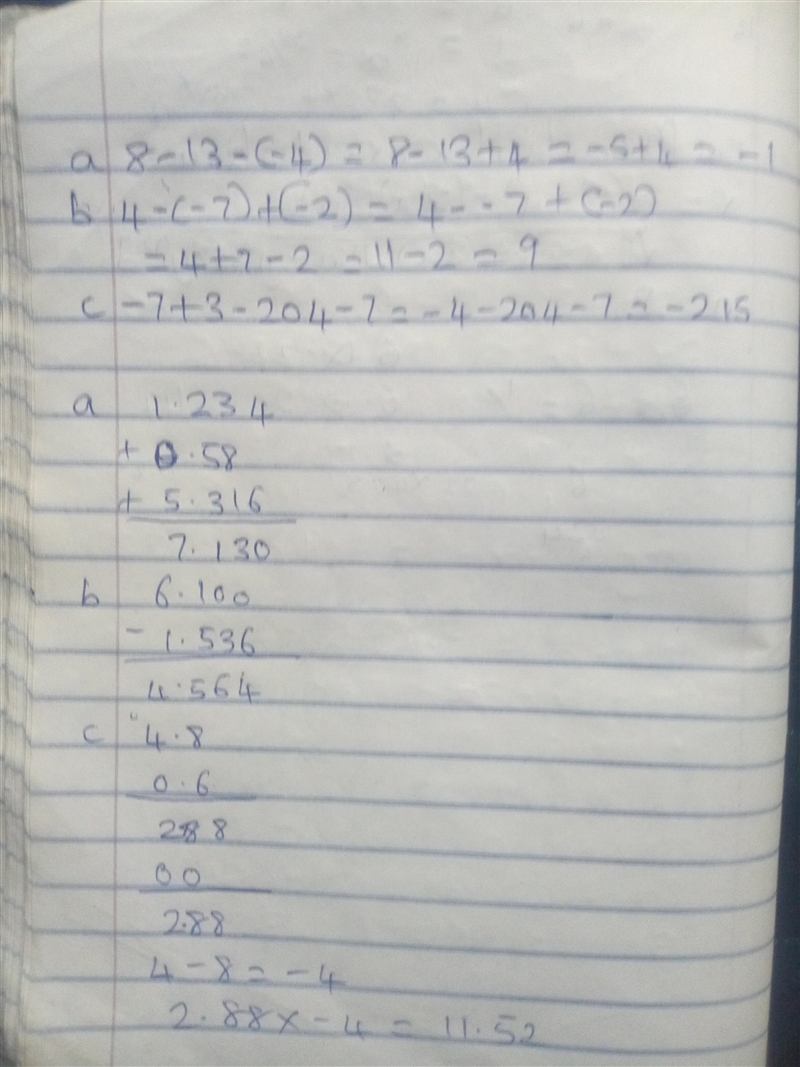 a 8-13-(-4) = 8-13+4 = -5+4 = -1
b 4-(-7)+(-2) = 4--7+(-2)
=4+7-2 =11-2 = 9
c -7+3-204-7=-4-204-7=-215
a 1.234
+ 0.58
+ 5.316
7.130
b 6.100
- 1.536
4.564
c 4.8
0.6
288
00
2.88
4-8= -4
2.88x-4 = 11.52